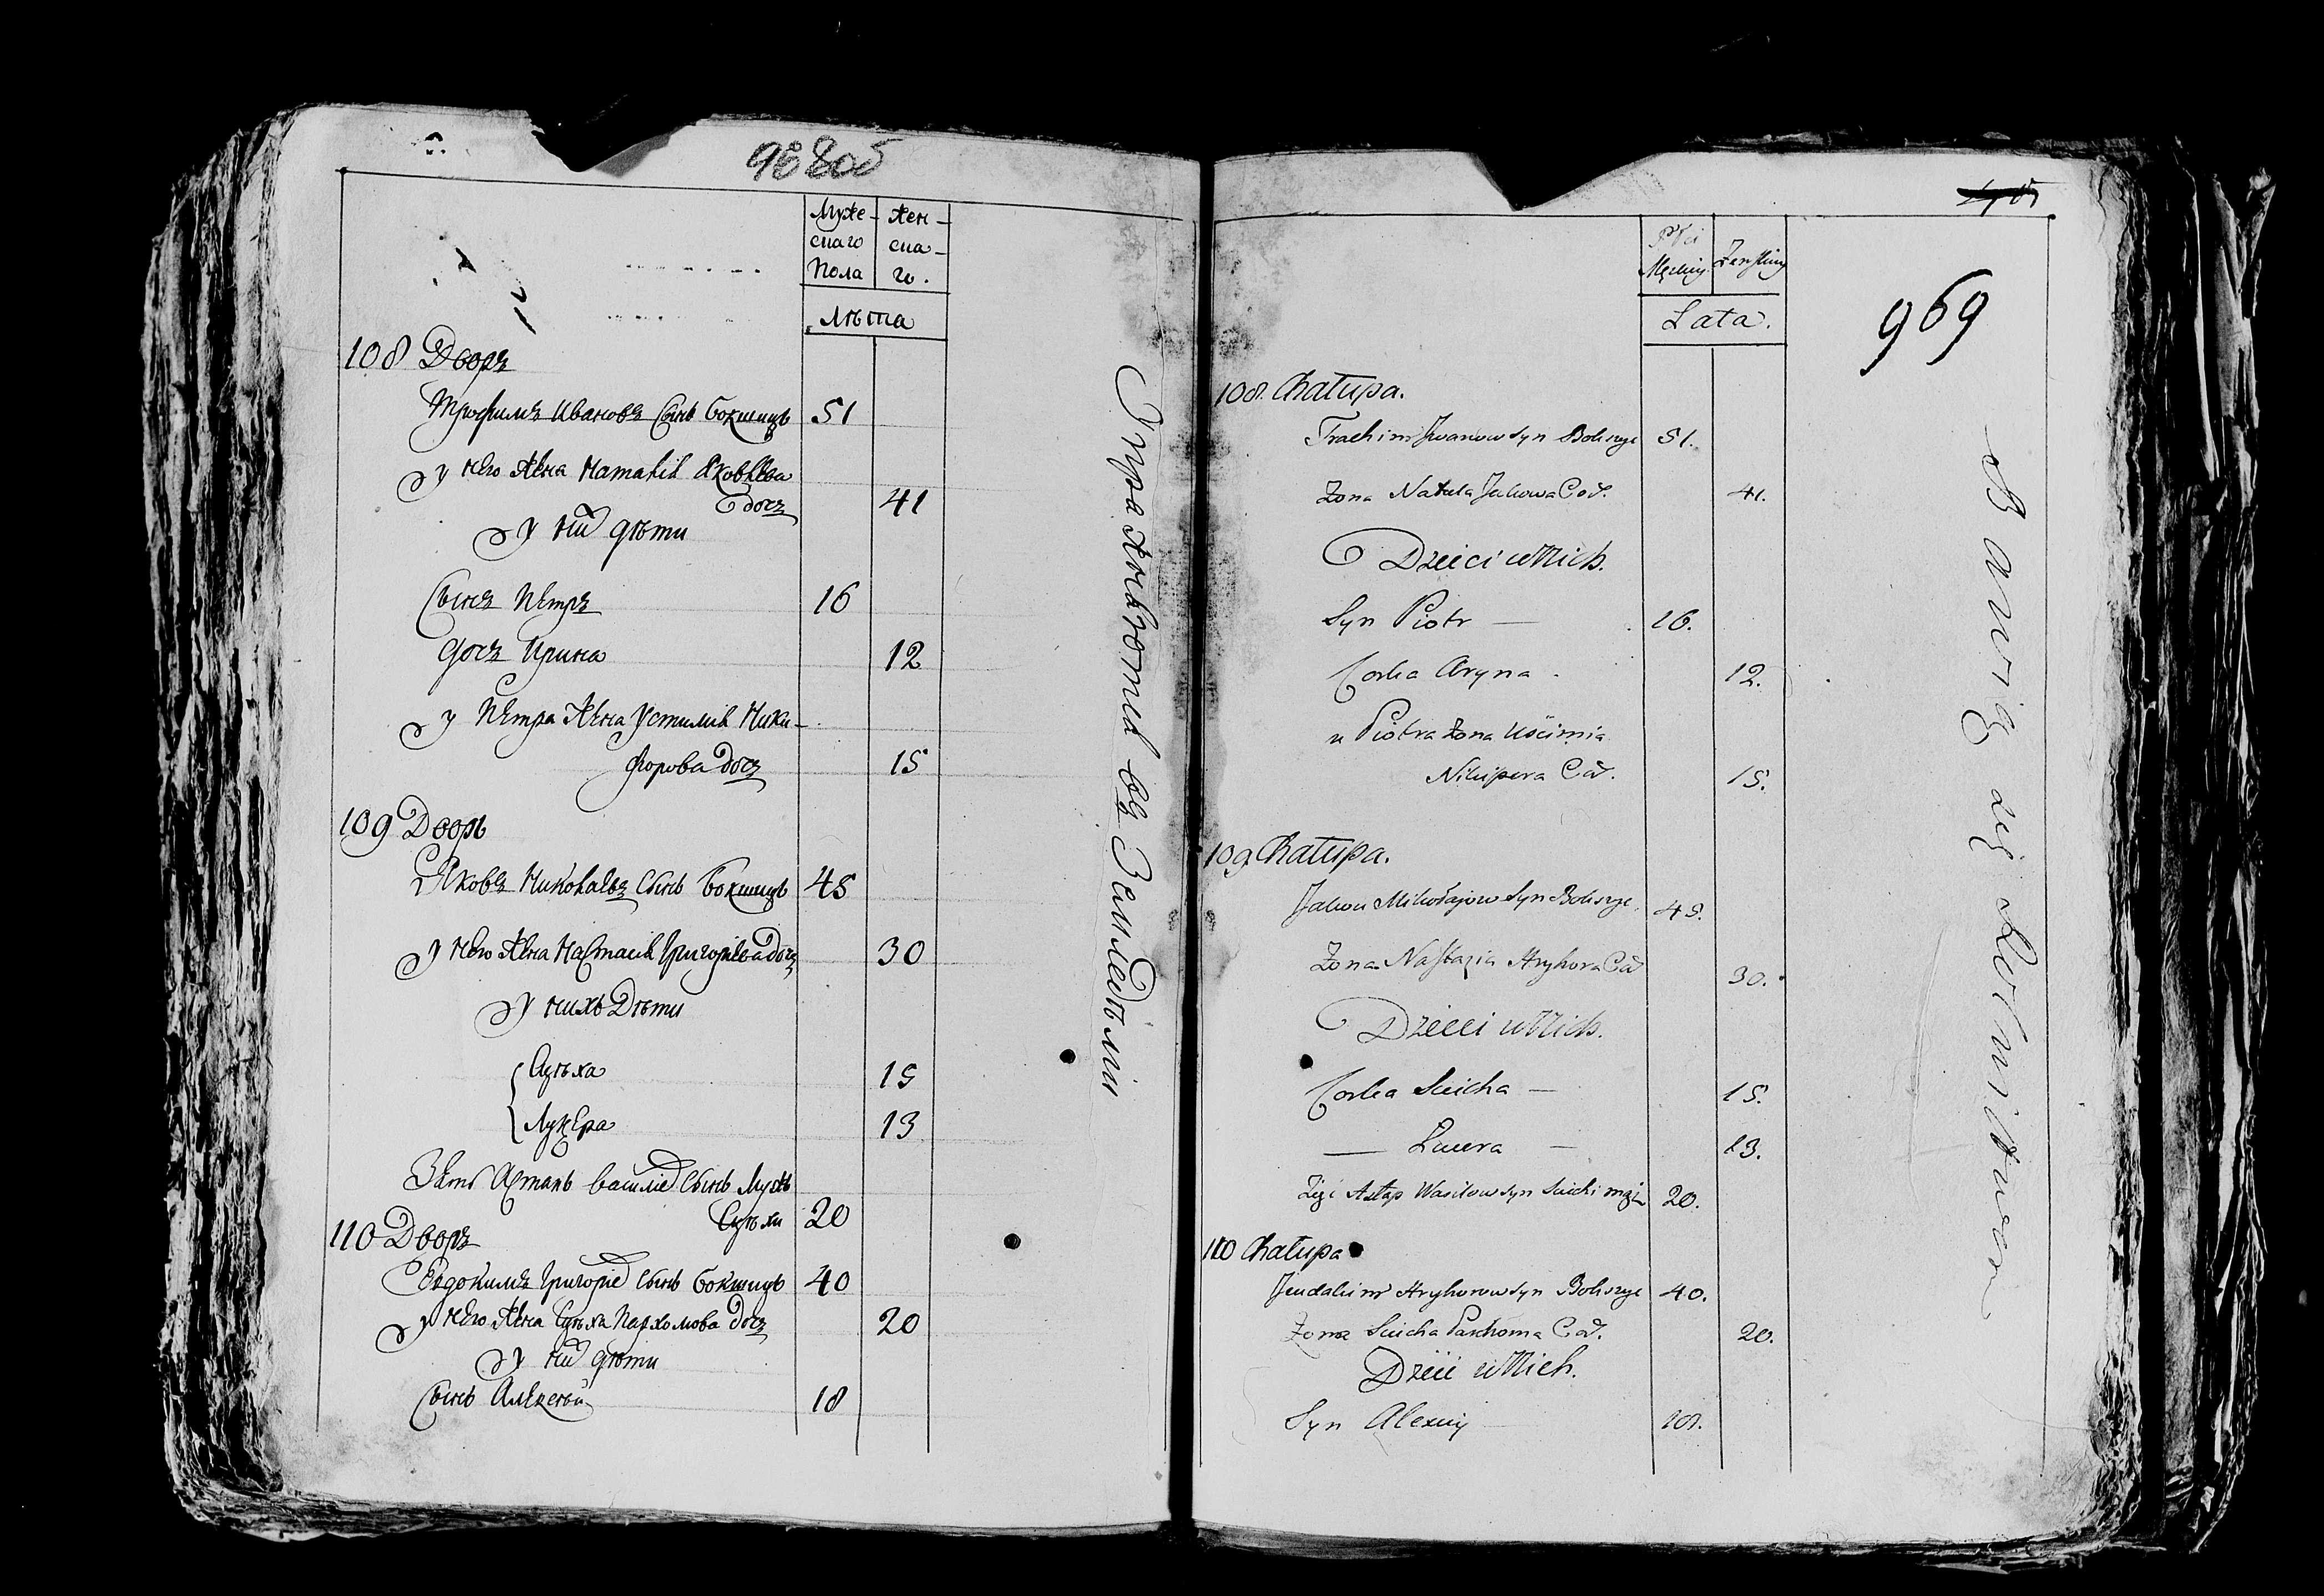 968об
Муже- жен-
скаго ска-
пола го.
Лѣта
108 Дворъ
Трофимъ Ивановъ Сынъ Бокшицъ 51
у него жена Наталія Яковлева
дочь 41
у ни дѣти
Сынъ Петръ 16
дочь Ирина 12
у Петра жена Устимія Ники-
форова дочь 15
109 Дворъ
Яковъ Николаевъ Сынъ Бокшицъ 45
у него жена Настасія Григоріева дочь 30
у нихъ Дѣти
Суѣха 15
Луцера 13
Зять Астапъ Василіе Сынъ Мужъ
Суѣхи 20
110 Дворъ
Евдокимъ Григоріе Сынъ Бокшицъ 40
у него жена Суѣха Пархомова дочь 20
у ни дѣти
Сынъ Алексѣй 18
Упражняются въ Земледѣліи
969
Płci
Męskiey Żeńskiey
Lata.
108. Chałupa.
Trachim Iwanow Syn Bokszyc 51.
Żona Natala Jakowa Cór. 41.
Dzieci u Nich.
Syn Piotr — 16.
Corka Aryna. 12.
u Piotra Żona Uścimia
Nikipera Cór. 15.
109 Chałupa.
Jakow Mikołajow Syn Bokszyc. 45.
Żona Nastazia Hryhora Cór 30.
Dzieci u Nich.
Corka Suicha — 15.
— Lucera — 13.
Zięć Astap Wasilow Syn Suichi mąż 20.
110 Chałupa
Jeudakim Hryhorow Syn Bokszyc 40.
Żona Suicha Parchoma Cór. 20.
Dzieci u Nich.
Syn Alexiey 18.
Bawią się Rolnictwem